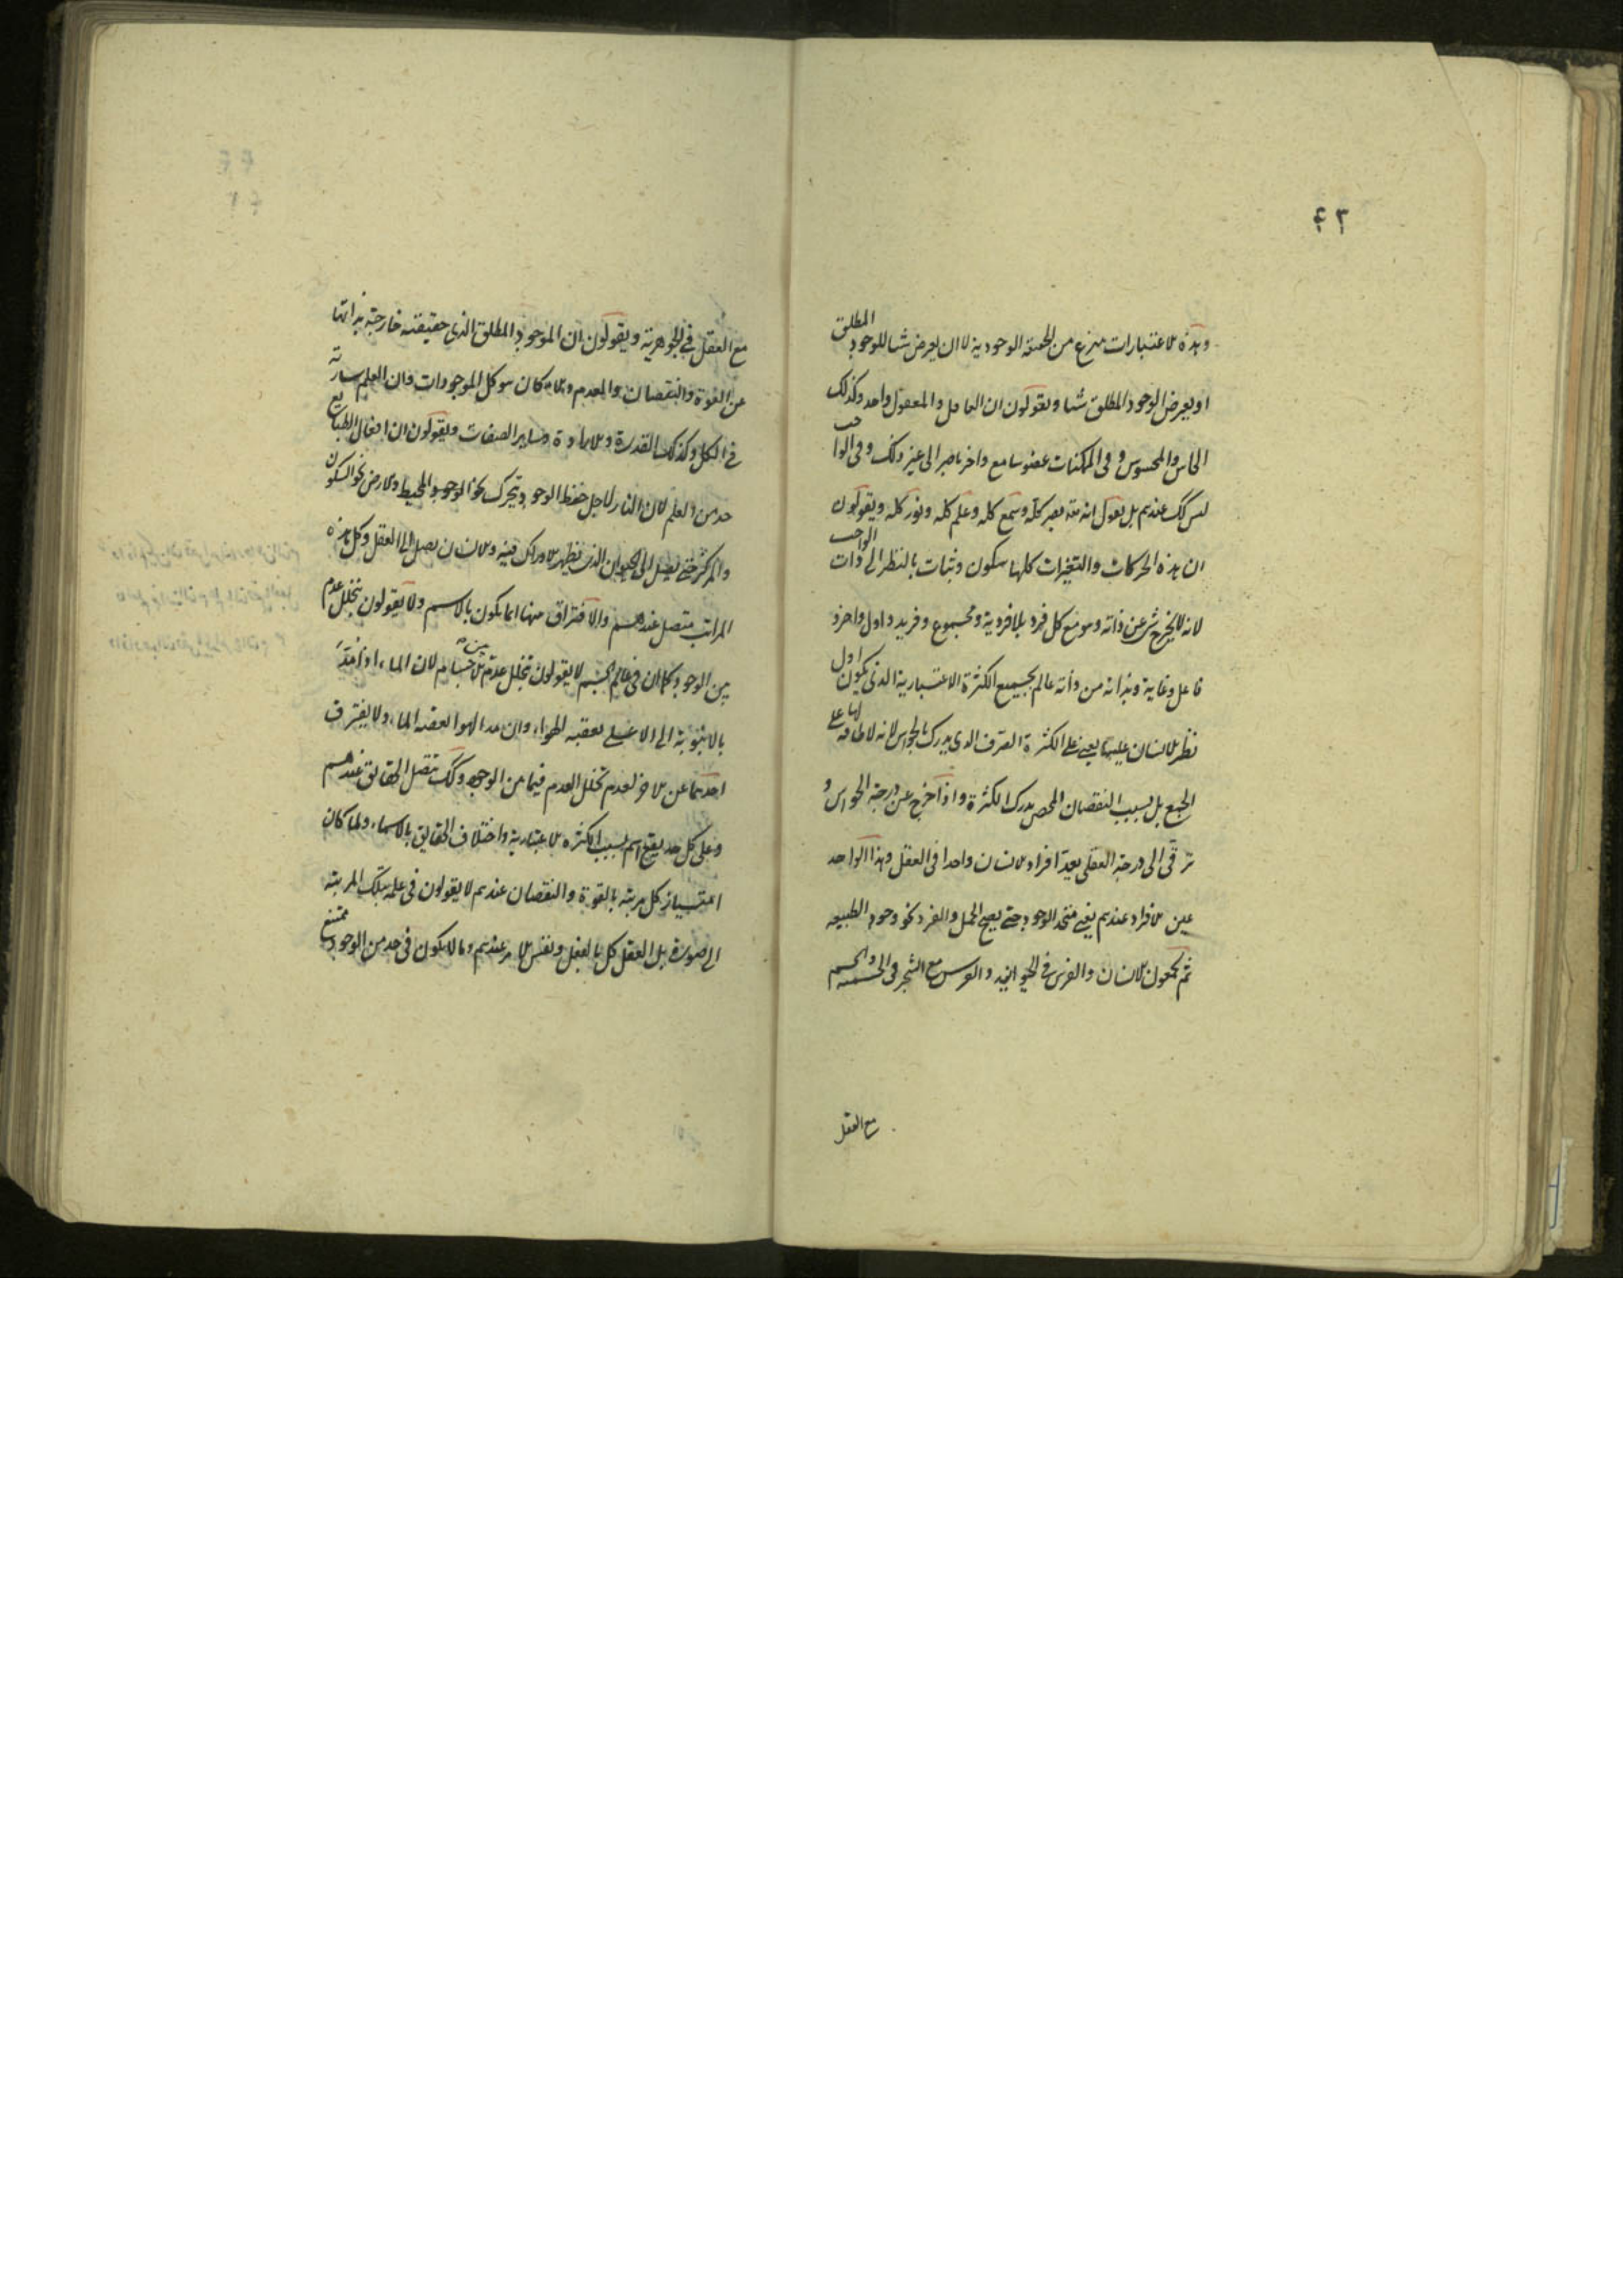 ٤٢
وهذه الاعتبارات منزع من الحقيقة الوجودية لا ان يعرض شيا للوجود المطلق
او يعرض الوجود المطلق شيا ويقولون ان العاقل والمعقول واحد وكذلك
الحاس والمحسوس وفى الممكنات عضو سامع واخر باصر الى غير ذلك وفى الواجب
ليس كك عندهم بل يقول انه تع بصر كله وسمع كله وعلم كله ونور كله ويقولون
ان هذه الحركات والتغيرات كلها سكون وثبات بالنظر الى ذات الواجب
لانه لا يخرج شئ عن ذاته وهو مع كل فرد بلا فردية ومجموع وفريد واول واخر و
فاعل وغاية وبذاته من ذاته عالم بجميع الكثرة الاعتبارية الذى يكون اول
نظر الانسان عليها يعنى على الكثرة الصرف الذى يدرك بالحواس لانه لا طاقة لها على
الجمع بل بسبب النقصان المحض يدرك الكثرة واذا خرج عن درجة الحواس و
ترقى الى درجة العقلى يعد افراد الانسان واحدا فى العقل وهذا الواحد
عين الافراد عندهم يعنى متحد الوجود حتى يصح الحمل والفرد نحو وجود الطبيعه
ثم يجمعون الانسان والفرس فى الحيوانيه والفرس مع الشجر فى الجسميه والجسم
مع العقل
مع العقل فى الجوهرية ويقولون ان الموجود المطلق الذى حقيقته خارجة بذاتها
عن القوة والنقصان والعدم والامكان هو كل الموجودات وان العلم سارية
فى الكل وكذلك القدرة والارادة وساير الصفات ويقولون ان افعال الطبايع
حد من العلم لان النار لاجل حفظ الوجود يتحرك نحو الوجود المحيط والارض نحو السكون
والمركز حتى يصل الى الحيوان الذى يظهر الادراك فيه والانسان يصل الى العقل وكل هذه
المراتب متصل عندهم والافتراق منها انما يكون بالاسم ولا يقولون بتخلل عدم
بين الوجود كما ان فى عالم الجسم لا يقولون بتخلل عدم بين الاجسام لان الماء اذا جذبته
بالانبوبة الى الاعلى يعقبه الهواء وان مد الهوا يعقبه الماء ولا يفترق
احدهما عن الاخر لعدم تخلل العدم فيما من الوجود وكك يتصل الحقايق عندهم
وعلى كل حد يقع اسم بسبب الكثرة الاعتبارية واختلاف الحقايق بالاسماء ولما كان
امتياز كل مرتبة بالقوة والنقصان عندهم لا يقولون فى علمه بتلك المرتبة
الى صورة بل العقل كل بالفعل ونفس الامر عندهم وما لا يكون فى حد من الوجود ممتنع